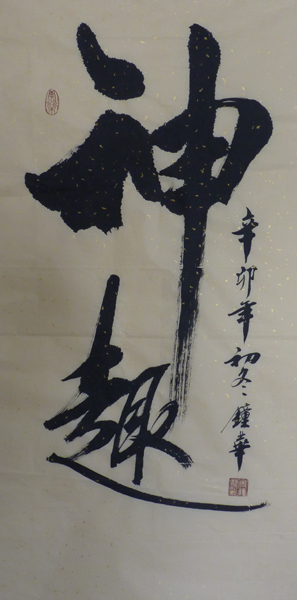 神趣
辛卯年初冬鍾華